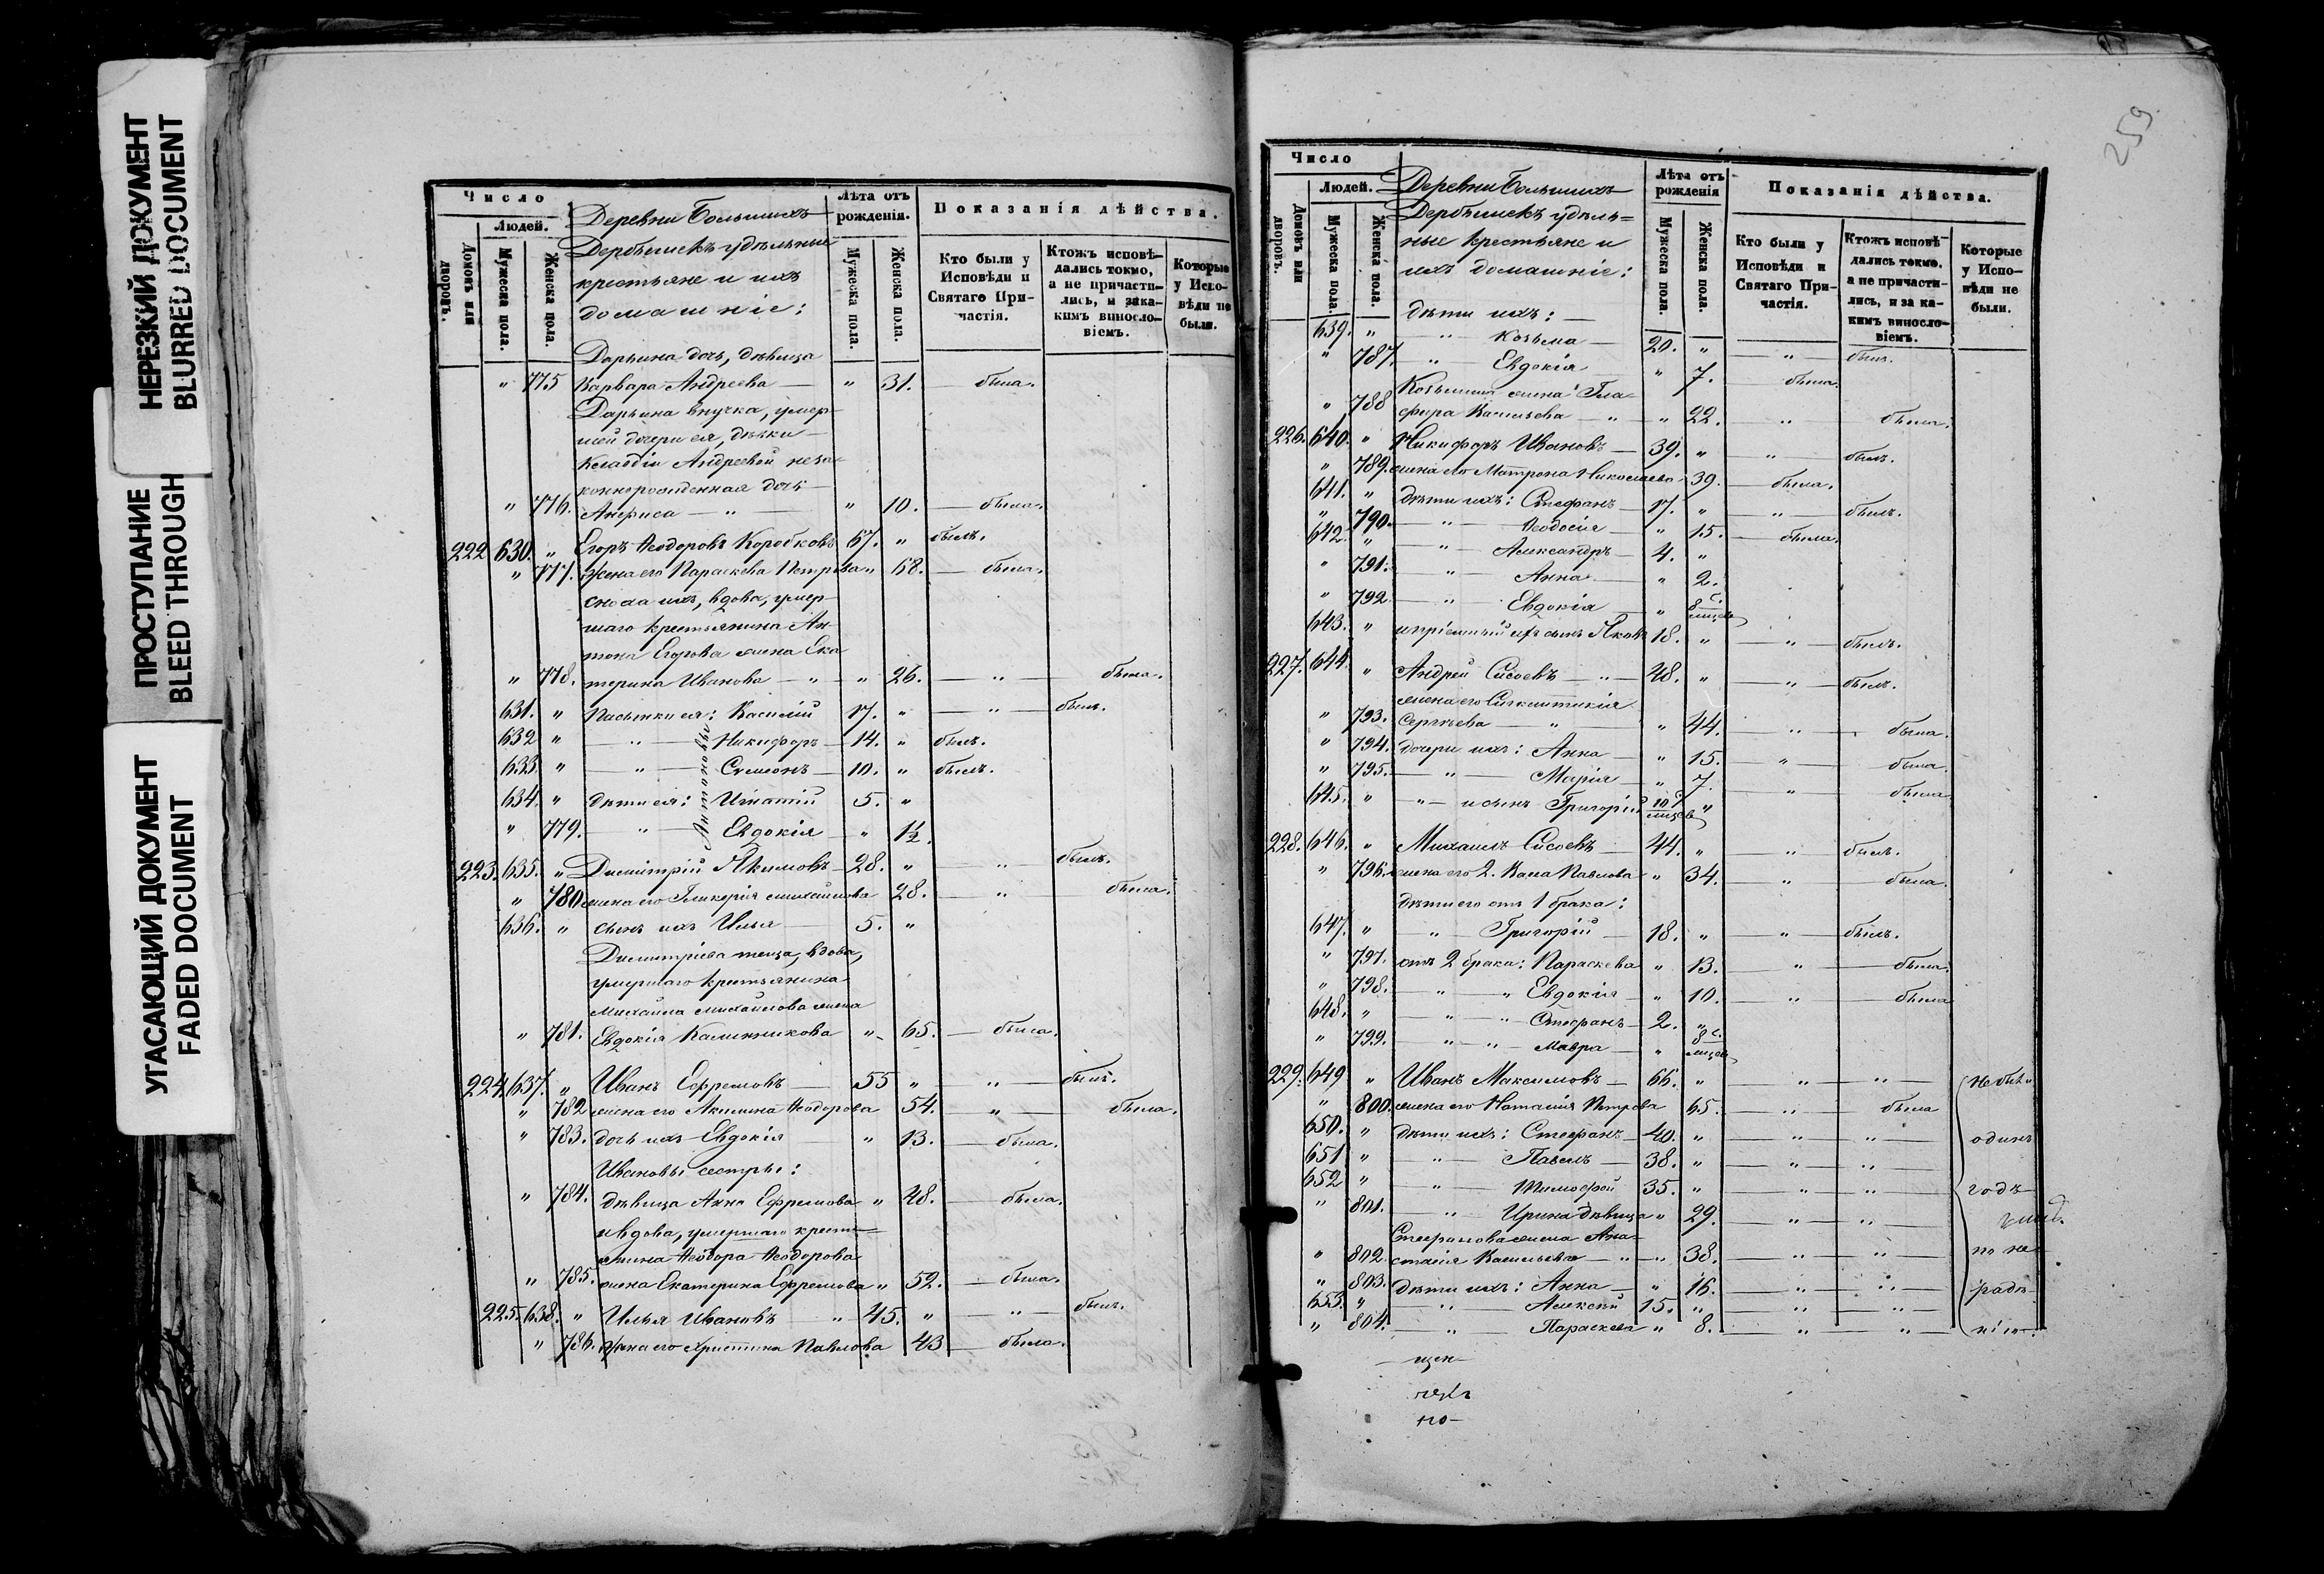 НЕРЕЗКИЙ ДОКУМЕНТ
BLURRED DOCUMENT
ПРОСТУПАНИЕ
BLEED THROUGH
УГАСАЮЩИЙ ДОКУМЕНТ
FADED DOCUMENT
Число
Людей.
Домовъ или дворовъ.
Мужеска пола.
Женска пола.
Деревни Большихъ
Дербышекъ удѣльные
крестьяне и ихъ
домашніе:
Лѣта отъ рожденія.
Мужеска пола.
Женска пола.
Показанія дѣйства.
Кто были у Исповѣди и Святаго Причастія.
Ктожъ исповѣдались токмо, а не причастились, и за какимъ винословіемъ.
Которые у Исповѣди не были.
Дарьина дочь, дѣвица
" 775 Варвара Андреева — " 31. — была.
Дарьина внучка, умер-
шей дочери ея, дѣвки
Клавдіи Андреевой неза-
коннорожденная дочь
" 776. Анфиса — " — " 10. — была.
222 630. " Егоръ Ѳеодоровъ Коробковъ 67. " былъ.
" 777. Жена его Параскева Петрова " 68. — была.
сноха ихъ, вдова, умер-
шаго крестьянина Ан-
тона Егорова жена Ека-
" 778. терина Иванова — " — " 26. — " — была.
631. " Пасынки ея: Василій 17. " — " — былъ.
632 " — " — Никифоръ — 14. " былъ.
Антоновы
633. " — " — Симеонъ — 10. " былъ.
634. " дѣти ея: Игнатій 5. "
" 779. — " — Евдокія — " 1½.
223. 635. " Димитрій Якимовъ — 28. " " былъ.
" 780 жена его Гликерія Михайлова 28. — " — была.
636. " сынъ ихъ Илья — 5. "
Димитріева теща, вдова,
умершаго крестьянина
Михаила Михайлова жена
" 781. Евдокія Калинникова " 65. — была.
224. 637. " Иванъ Ефремовъ — 55 " — " — былъ.
" 782 жена его Акилина Ѳеодорова 54. — " — была.
" 783. дочь ихъ Евдокія " 13. — была.
Ивановы сестры:
" 784. дѣвица Анна Ефремова " 48. — была.
и вдова, умершаго кресть-
янина Ѳеодора Ѳеодорова
" 785. жена Екатерина Ефремова " 52. — была.
225. 638. " Илья Ивановъ — " 45. " " — былъ.
" 786. Жена его Христина Павлова 43 — была.
259
Число
Людей.
Домовъ или дворовъ.
Мужеска пола.
Женска пола.
Деревни Большихъ
Дербышекъ удѣль=
ные крестьяне и
ихъ домашніе:
Лѣта отъ рожденія
Мужеска пола.
Женска пола.
Показанія дѣйства.
Кто были у Исповѣди и Святаго Причастія.
Ктожъ исповѣдались токмо, а не причастились, и за какимъ винословіемъ.
Которые у Исповѣди не были.
дѣти ихъ: —
639. " — " — Козьма — 20. " — " — былъ.
" 787. " — Евдокія " 7. — была.
Козьмина жена Гла-
" 788 фира Васильева — " — " 22. — " — была.
226. 640. " Никифоръ Ивановъ — 39. " — " — былъ.
" 789. жена его Матрона Николаева 39. — была.
641. " дѣти ихъ: Стефанъ — 17. " — " — былъ.
" 790. — " — Ѳеодосія — " 15. — была.
642. " — " — Александръ — 4. "
" 791. — " — Анна — " 2.
" 792 — " — Евдокія — " 8 мцсевъ
643. " и пріемный ихъ сынъ Яковъ 18. " — " — былъ.
227. 644. " Андрей Сисоевъ — " — 48. " — " — былъ.
жена его Сигклитикія
" 793. Сергѣева — " — " 44. — " — была.
" 794. дочери ихъ: Анна — " 15. — " — была.
" 795. — " — Марія — " 7. " — была
645. " " — и сынъ Григорій 10 мцсевъ "
228. 646. " Михаилъ Сисоевъ — 44. " — " — былъ.
" 796. жена его 2. Васса Павлова " 34. — " — была.
дѣти его отъ 1 брака:
647. " — " — Григорій — 18. " — " — былъ.
" 797. отъ 2 брака: Параскева " 13. — " — была.
" 798. — " — " Евдокія — " 10. — " — была
648. " — " — " Стефанъ — 2. "
" 799. — " — " — Мавра — " 8 мцсев
229. 649 " Иванъ Максимовъ — 66. " — " — " — не были
" 800. жена его Наталія Петрова 65. — " — была
650. " дѣти ихъ: Стефанъ — 40. " — " — " — одинъ
651 " — " — Павелъ — 38. " — " — " —
652 " — " — Тимоѳей 35. " — " — " — годъ
" 801. — " — Ирина дѣвица " 29. — " — " —
Стефанова жена Ана-
" 802. стасія Васильева — " — " 38. — " — " — по не-
" 803. дѣти ихъ: Анна — " 16. — " — " — радѣ-
653. " — " — Алексѣй 15. " — " — " —
" 804. — " — Параскева " 8. — " — " — нію.